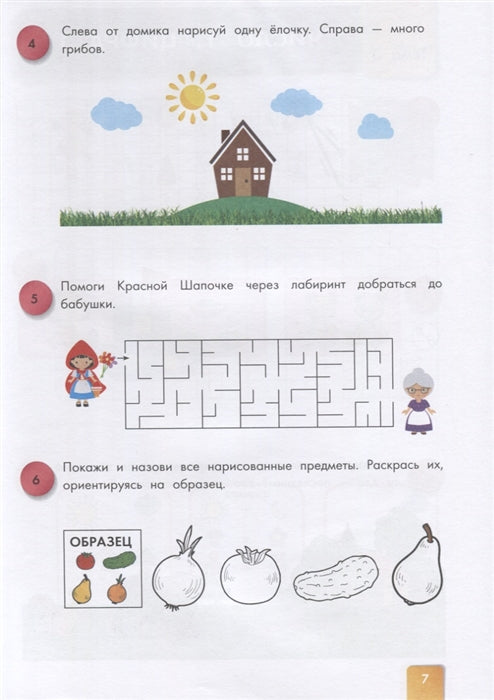 4
Слева от домика нарисуй одну ёлочку. Справа — много
грибов.
5
Помоги Красной Шапочке через лабиринт добраться до
бабушки.
6
Покажи и назови все нарисованные предметы. Раскрась их,
ориентируясь на образец.
ОБРАЗЕЦ
7